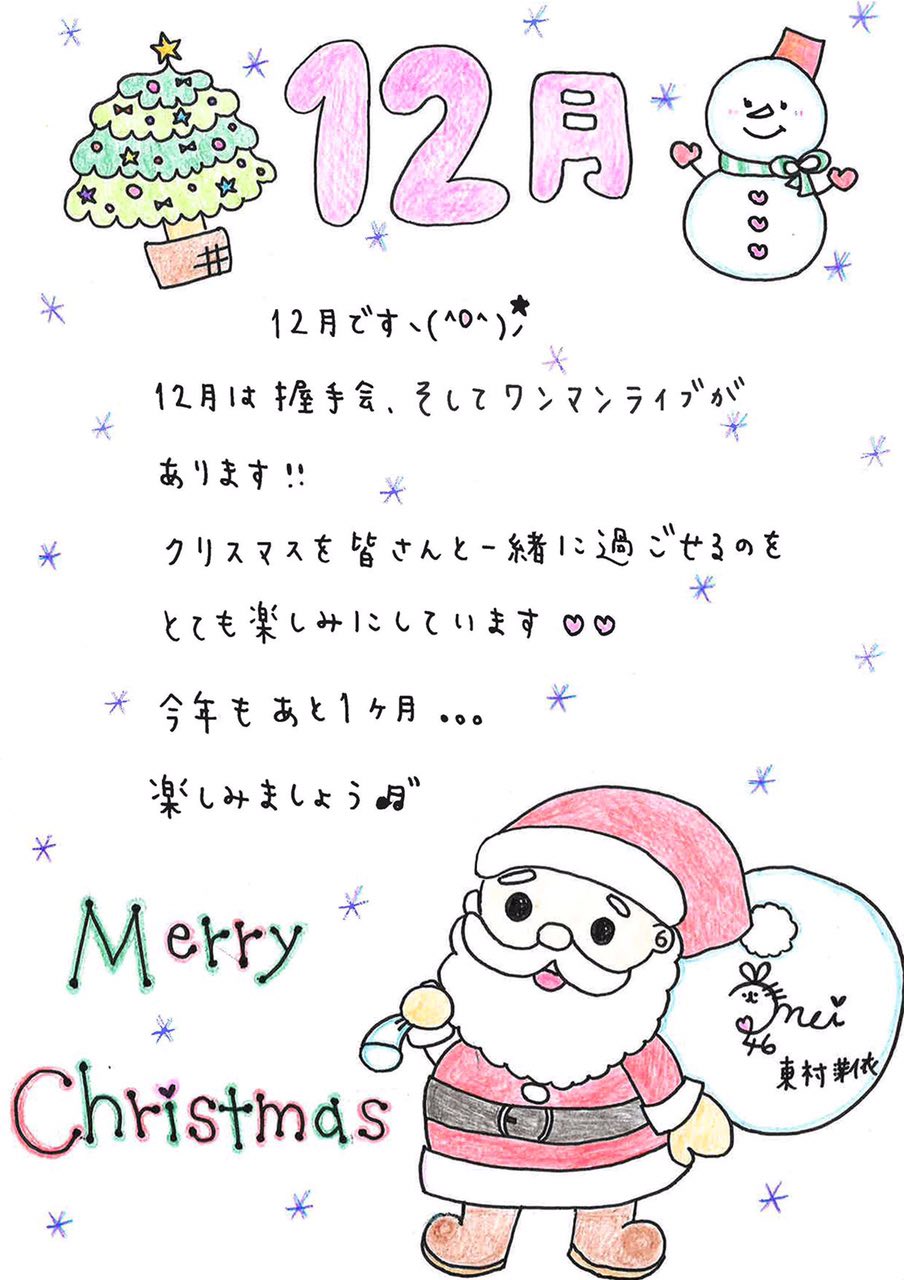 12月
12月ですヽ(^0^)ノ★
12月は握手会、そしてワンマンライブが
あります!!
クリスマスを皆さんと一緒に過ごせるのを
とても楽しみにしています♡♡
今年もあと1ヶ月...
楽しみましょう♬
Merry
Christmas
mei
46
東村芽依